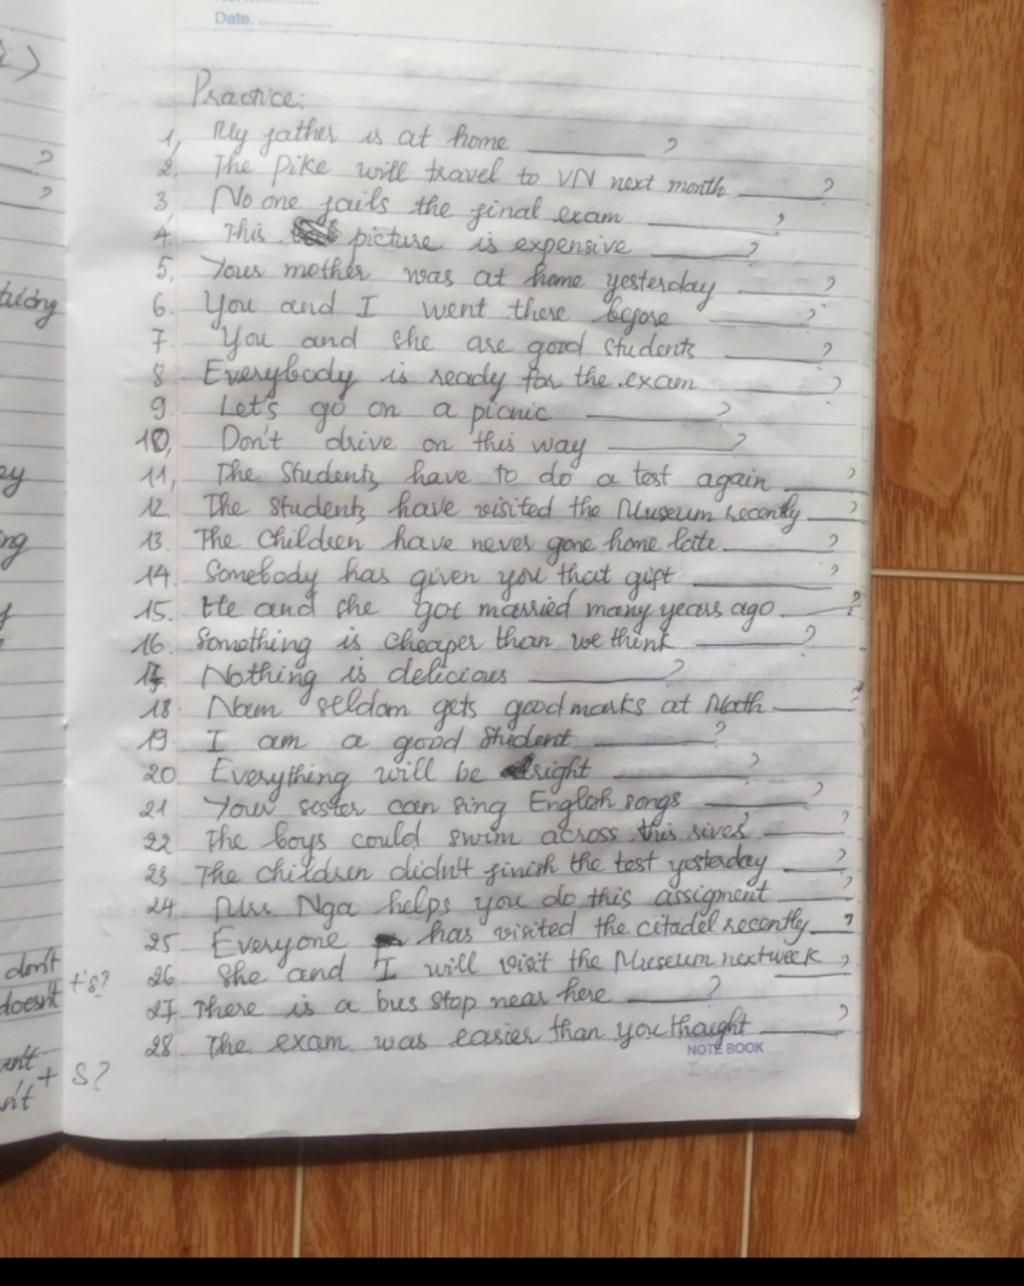 Date. ..................
Practice:
1, My father is at home ________ ?
2, The Pike will travel to VN next month ______ ?
3 No one fails the final exam ________ ?
4. This picture is expensive ______ ?
5, Your mother was at home yesterday ______ ?
6. You and I went there before ______ ?
7. You and she are good students ______ ?
8 Everybody is ready for the exam ______ ?
9. Let's go on a picnic ________ ?
10, Don't drive on this way ________ ?
11, The students have to do a test again ______ ?
12 The students have visited the Museum recently ____ ?
13. The children have never gone home late. ______ ?
14. Somebody has given you that gift ________ ?
15. He and she got married many years ago ______ ?
16. Something is cheaper than we think ______ ?
17 Nothing is delicious ________ ?
18 Nam seldom gets good marks at Math ______ ?
19. I am a good student ________ ?
20. Everything will be right ________ ?
21 Your sister can sing English songs ______ ?
22 The boys could swim across this river ______ ?
23 The children didn't finish the test yesterday ____ ?
24 Nga helps you do this assigment ______ ?
25 Everyone has visited the citadel recently ____ ?
26 She and I will visit the Museum next week ____ ?
27 There is a bus stop near here ______ ?
28 The exam was easier than you thought ______ ?
NOTE BOOK
?
?
tướng
ey
ng
don't
doesn't + S?
+ S?